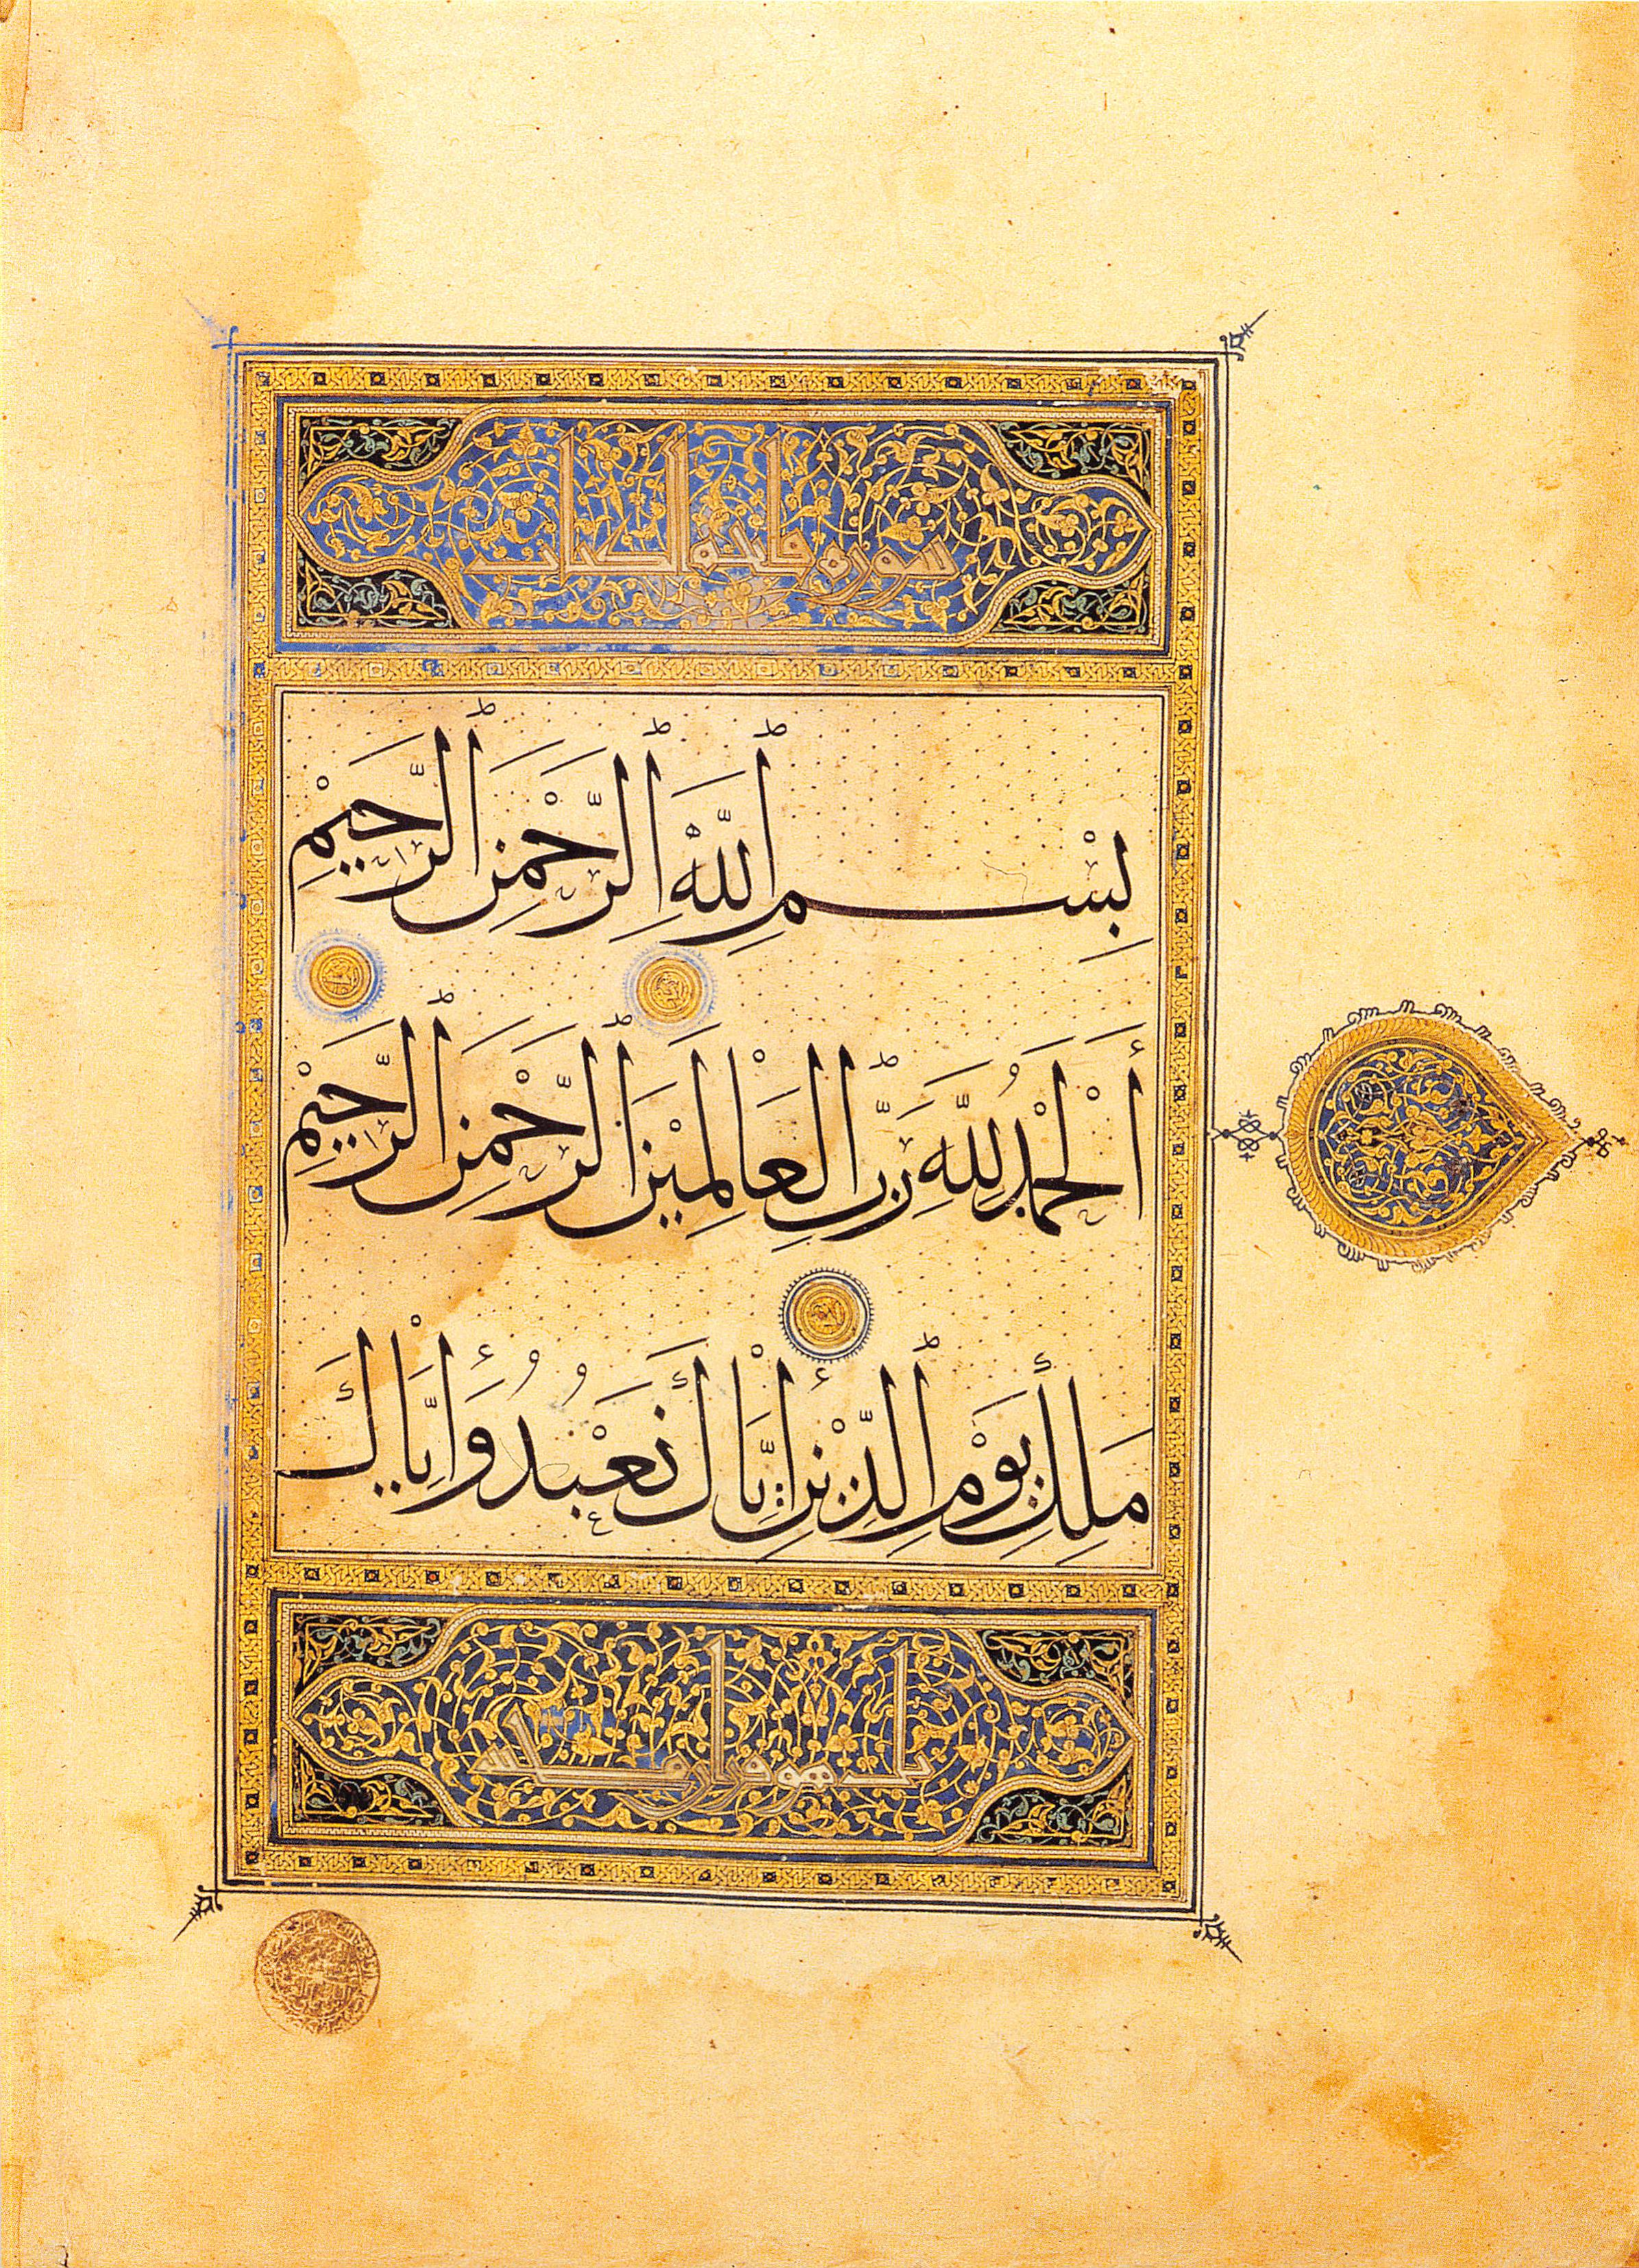 سورة فاتحة الكتاب
بِسْمِ اللَّهِ الرَّحْمَنِ الرَّحِيْمِ
أَلْحَمْدُ لِلَّهِ رَبِّ الْعَالَمِيْنَ الرَّحْمَنِ الرَّحِيْمِ
مَلِكِ يَوْمِ الدِّيْنِ إِيَّاكَ نَعْبُدُ وَإِيَّاكَ